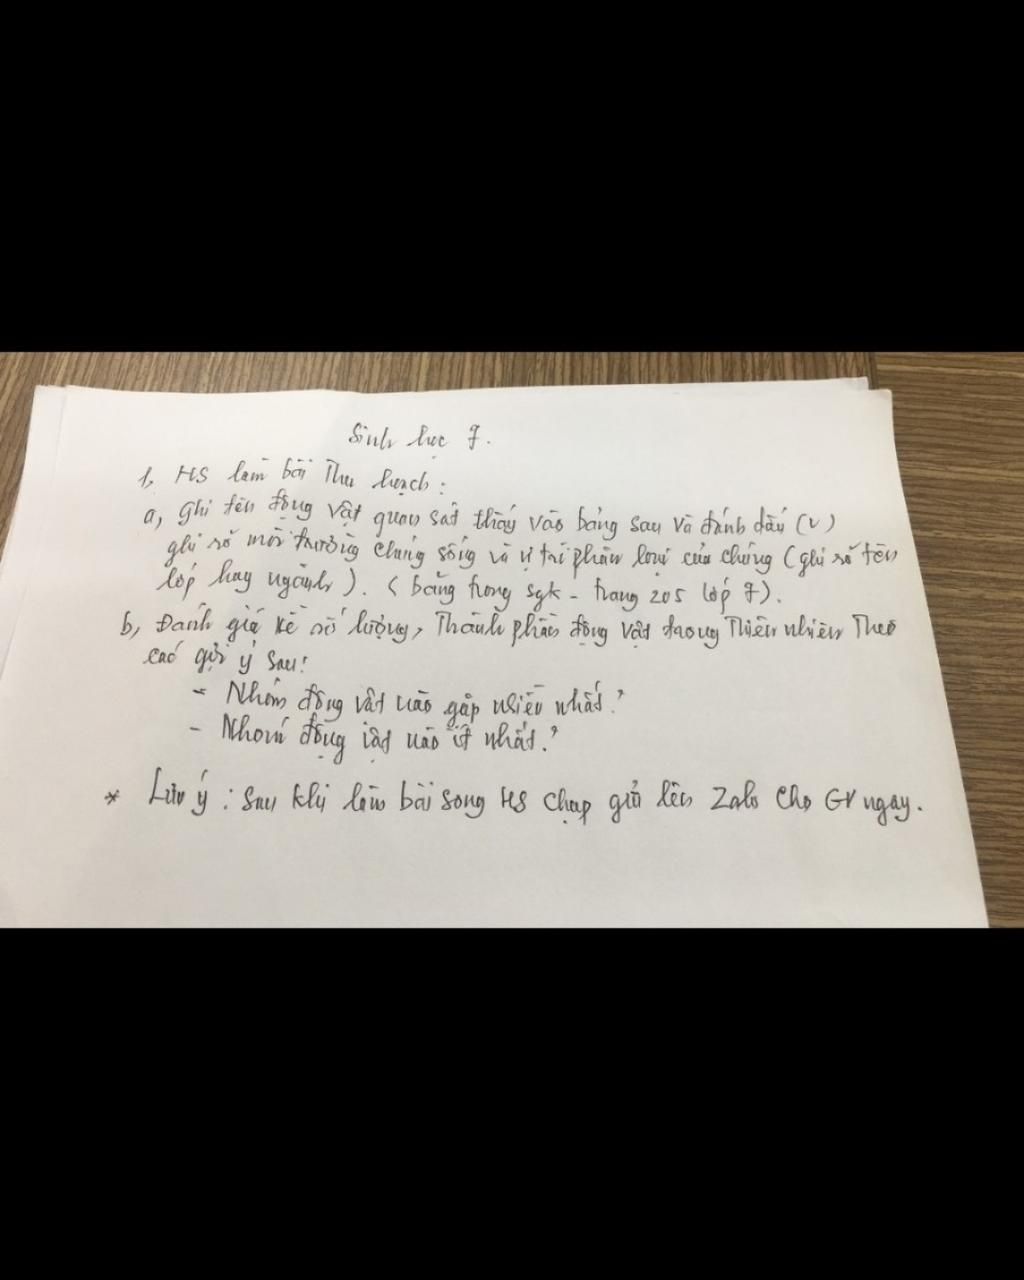 Sinh học 7.
1, HS làm bài Thu hoạch:
a, Ghi tên động vật quan sát thấy vào bảng sau và đánh dấu (v)
ghi rõ môi trường chúng sống và vị trí phân loại của chúng (ghi rõ tên
lớp hay ngành). (bảng trong sgk - trang 205 lớp 7).
b, Đánh giá về số lượng, Thành phần động vật trong Thiên nhiên Theo
các gợi ý sau:
- Nhóm động vật nào gặp nhiều nhất?
- Nhóm động vật nào ít nhất?
* Lưu ý: Sau khi làm bài song HS chụp gửi lên Zalo cho GV ngay.